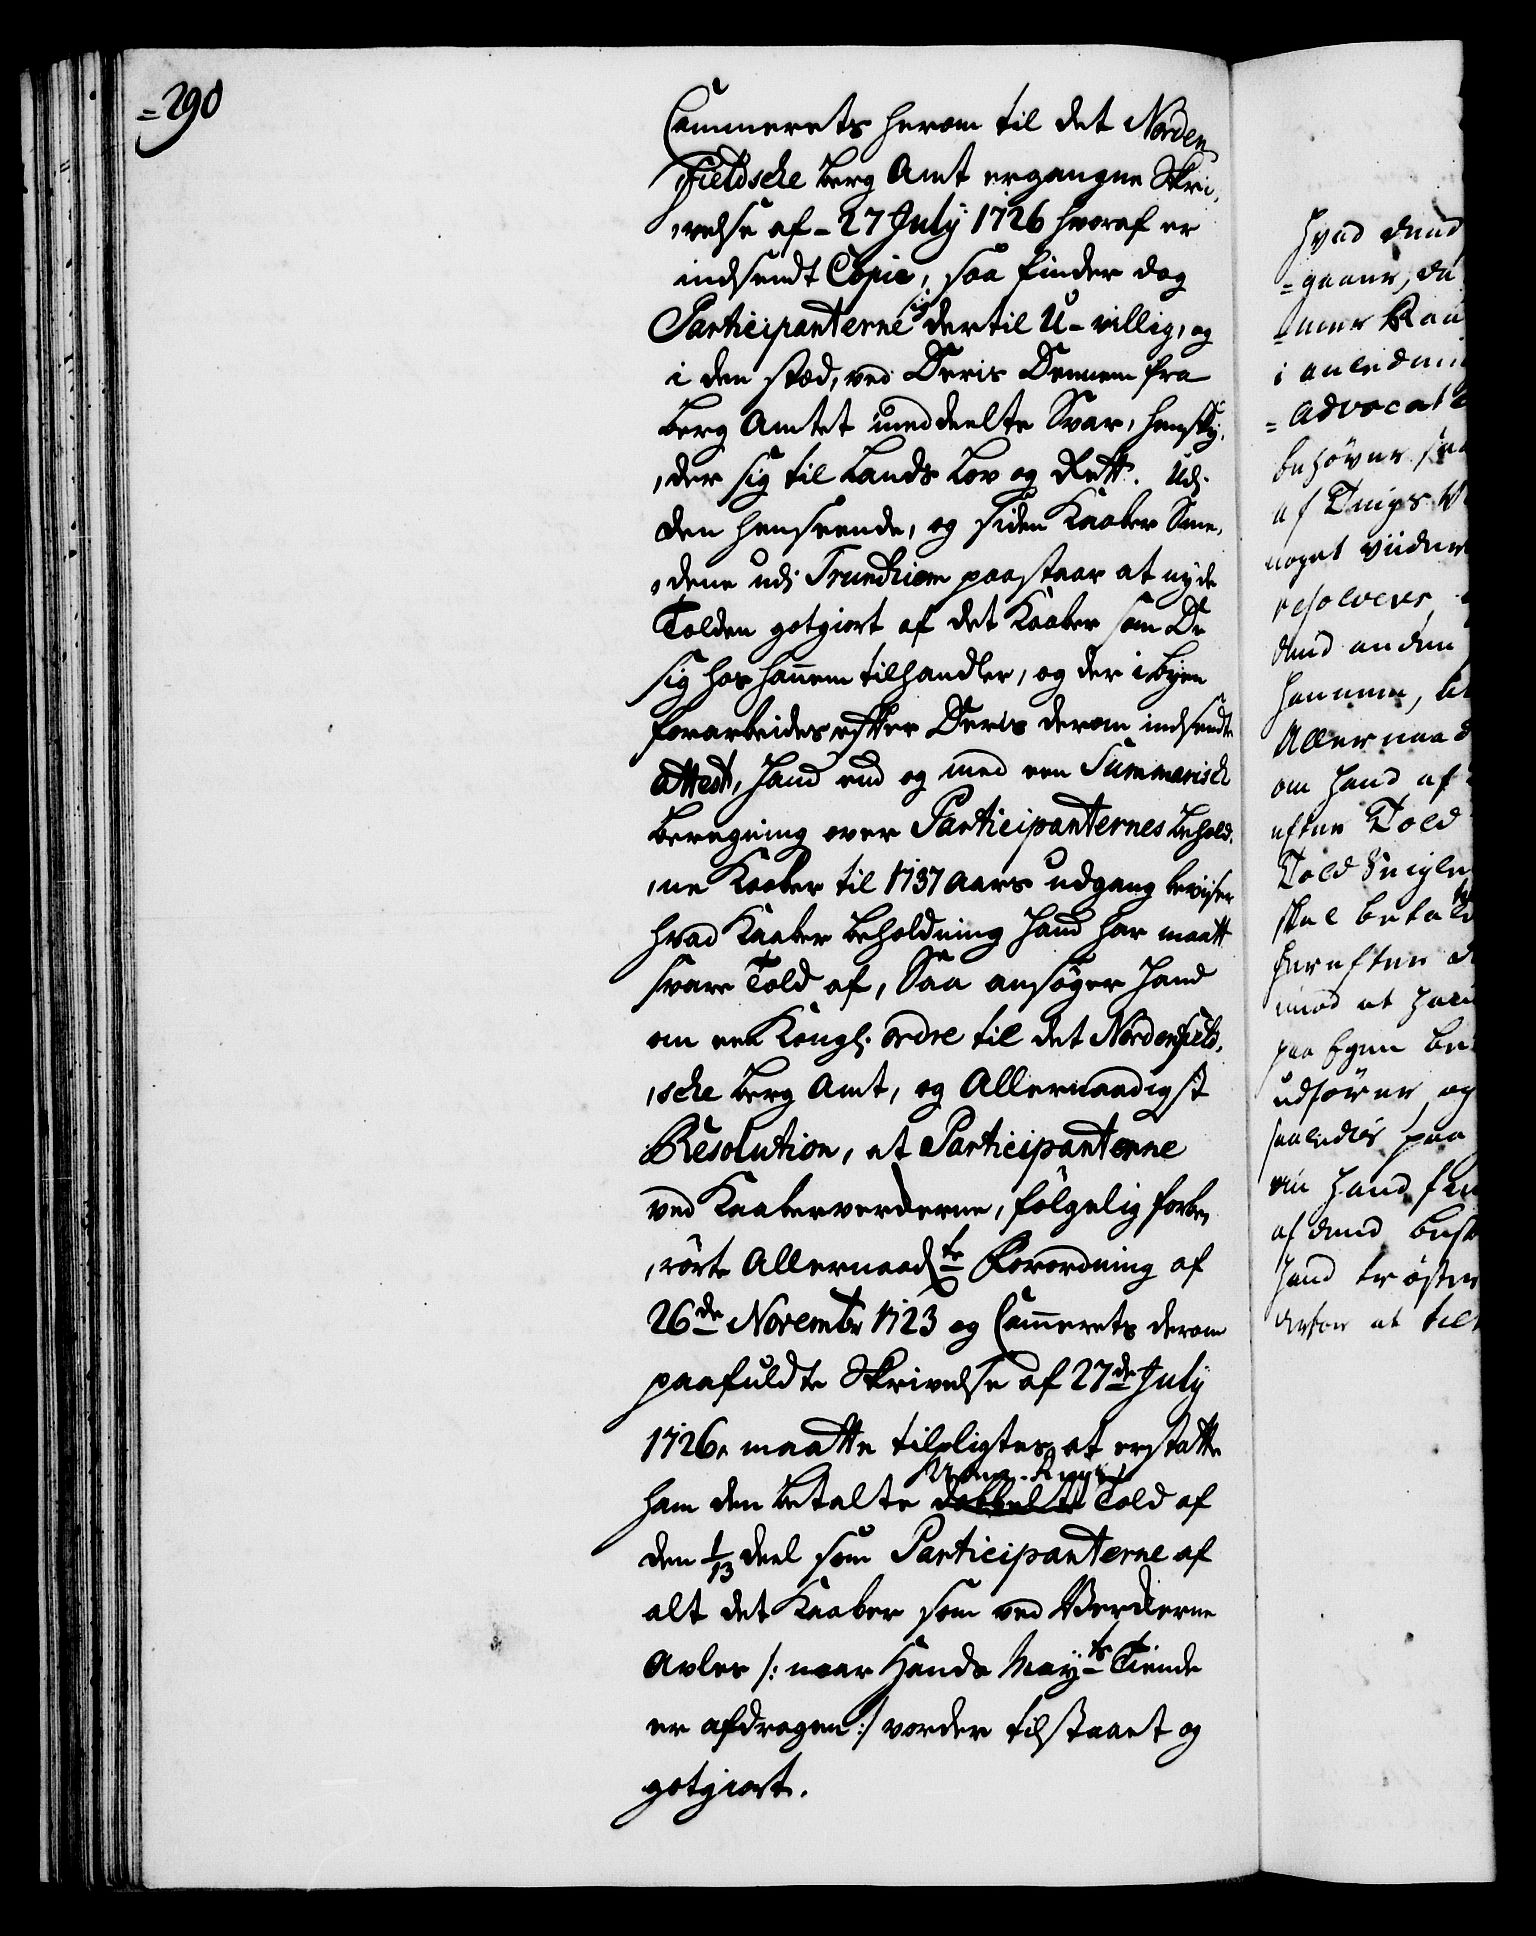 =290
Cammerets herom til det Norden
Fieldsche Berg Amt ergangne Skri,
,velse af - 27 July 1726 hvoraf er
indsendt Copie, saa finder dog
Participanterne sig dertil U-villig, og
i den stæd, ved Deris Dennem fra
Berg Amtet meddeelte Svar, henskÿ,
,der sig til Lands Lov og Rett. Udj
den henseende, og siden Kaaber Sme,
,dene udj Trundhiem paastaar at nyde
Tolden gotgiort af det Kaaber som De
sig hos hannem tilhandler, og der i byen
forarbeides efter Deris derom indsendte
Attest, Hand end og med een Summarisch
Beregning over Participanternes behold,
,ne Kaaber til 1737 Aars udgang beviiser
hvad Kaaber Beholdning Hand har maatt
svare Told af, Saa ansøger Hand
om een Kongl: ordre til det Nordenfield,
,sche Berg Amt, og Allernaadigst
Resolution, at Participanterne
ved Kaaberverckerne, følgelig forbe,
,rørte Allernaadste Forordning af
26de Novembr 1723 og Cammerets derom
paafuldte Skrivelse af 27de July
1726. maatte tilpligtes at erstatte
ham den betalte dobbelte Told af
den 1/13 deel som Participanterne af
alt det Kaaber som ved Verckerne
Avles /: naar Hands Mayts Tiende
er afdragen :/ vorder tilstaaet og
gotgiort.
hvad dend
=gaaer, da
=mer Raa
i anledni
=Advocat
behøver
af
noget viidere
resolveres
dend anden
hannem,
Allernaad
om Hand af
efter Told
Told
skal betal
herefter
imod at
paa Egen
udfører, og
saaledes paa
Hand
af dend
Hand trøster
derfor at til